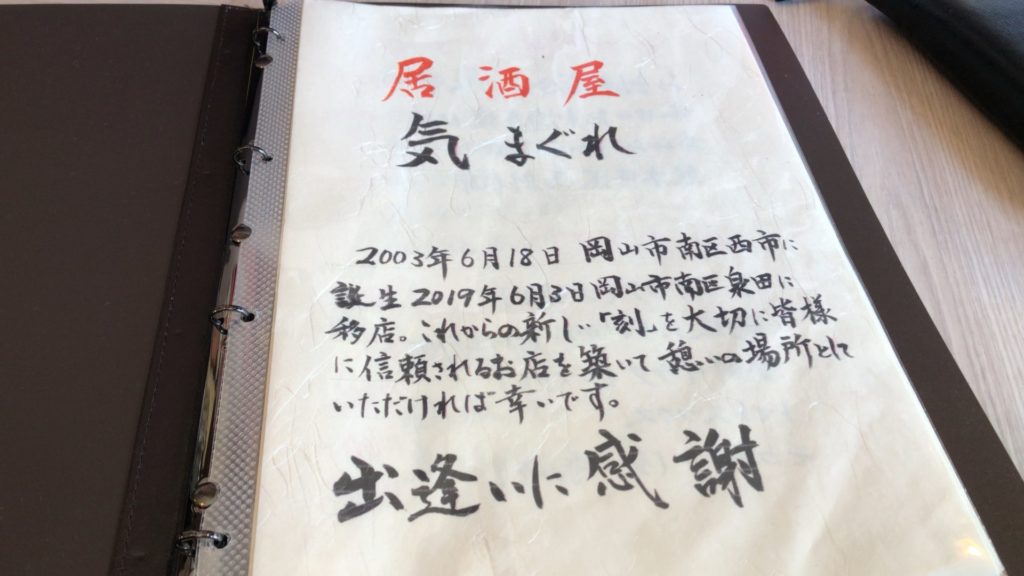 居酒屋
気まぐれ
2003年6月18日 岡山市南区西市に
誕生2019年6月3日岡山市南区泉田に
移店。これからの新しい「刻」を大切に皆様
に信頼されるお店を築いて憩いの場所として
いただければ幸いです。
出逢いに感謝